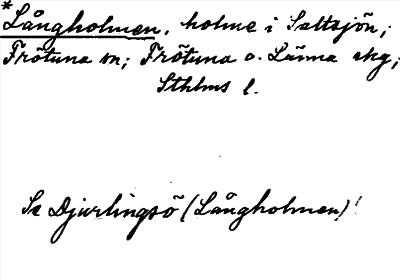 *Långholmen, holme i Saltsjön;
Frötuna sn; Frötuna o. Länna skg;
Sthlms l.
Se Djurlingsö (Långholmen)!